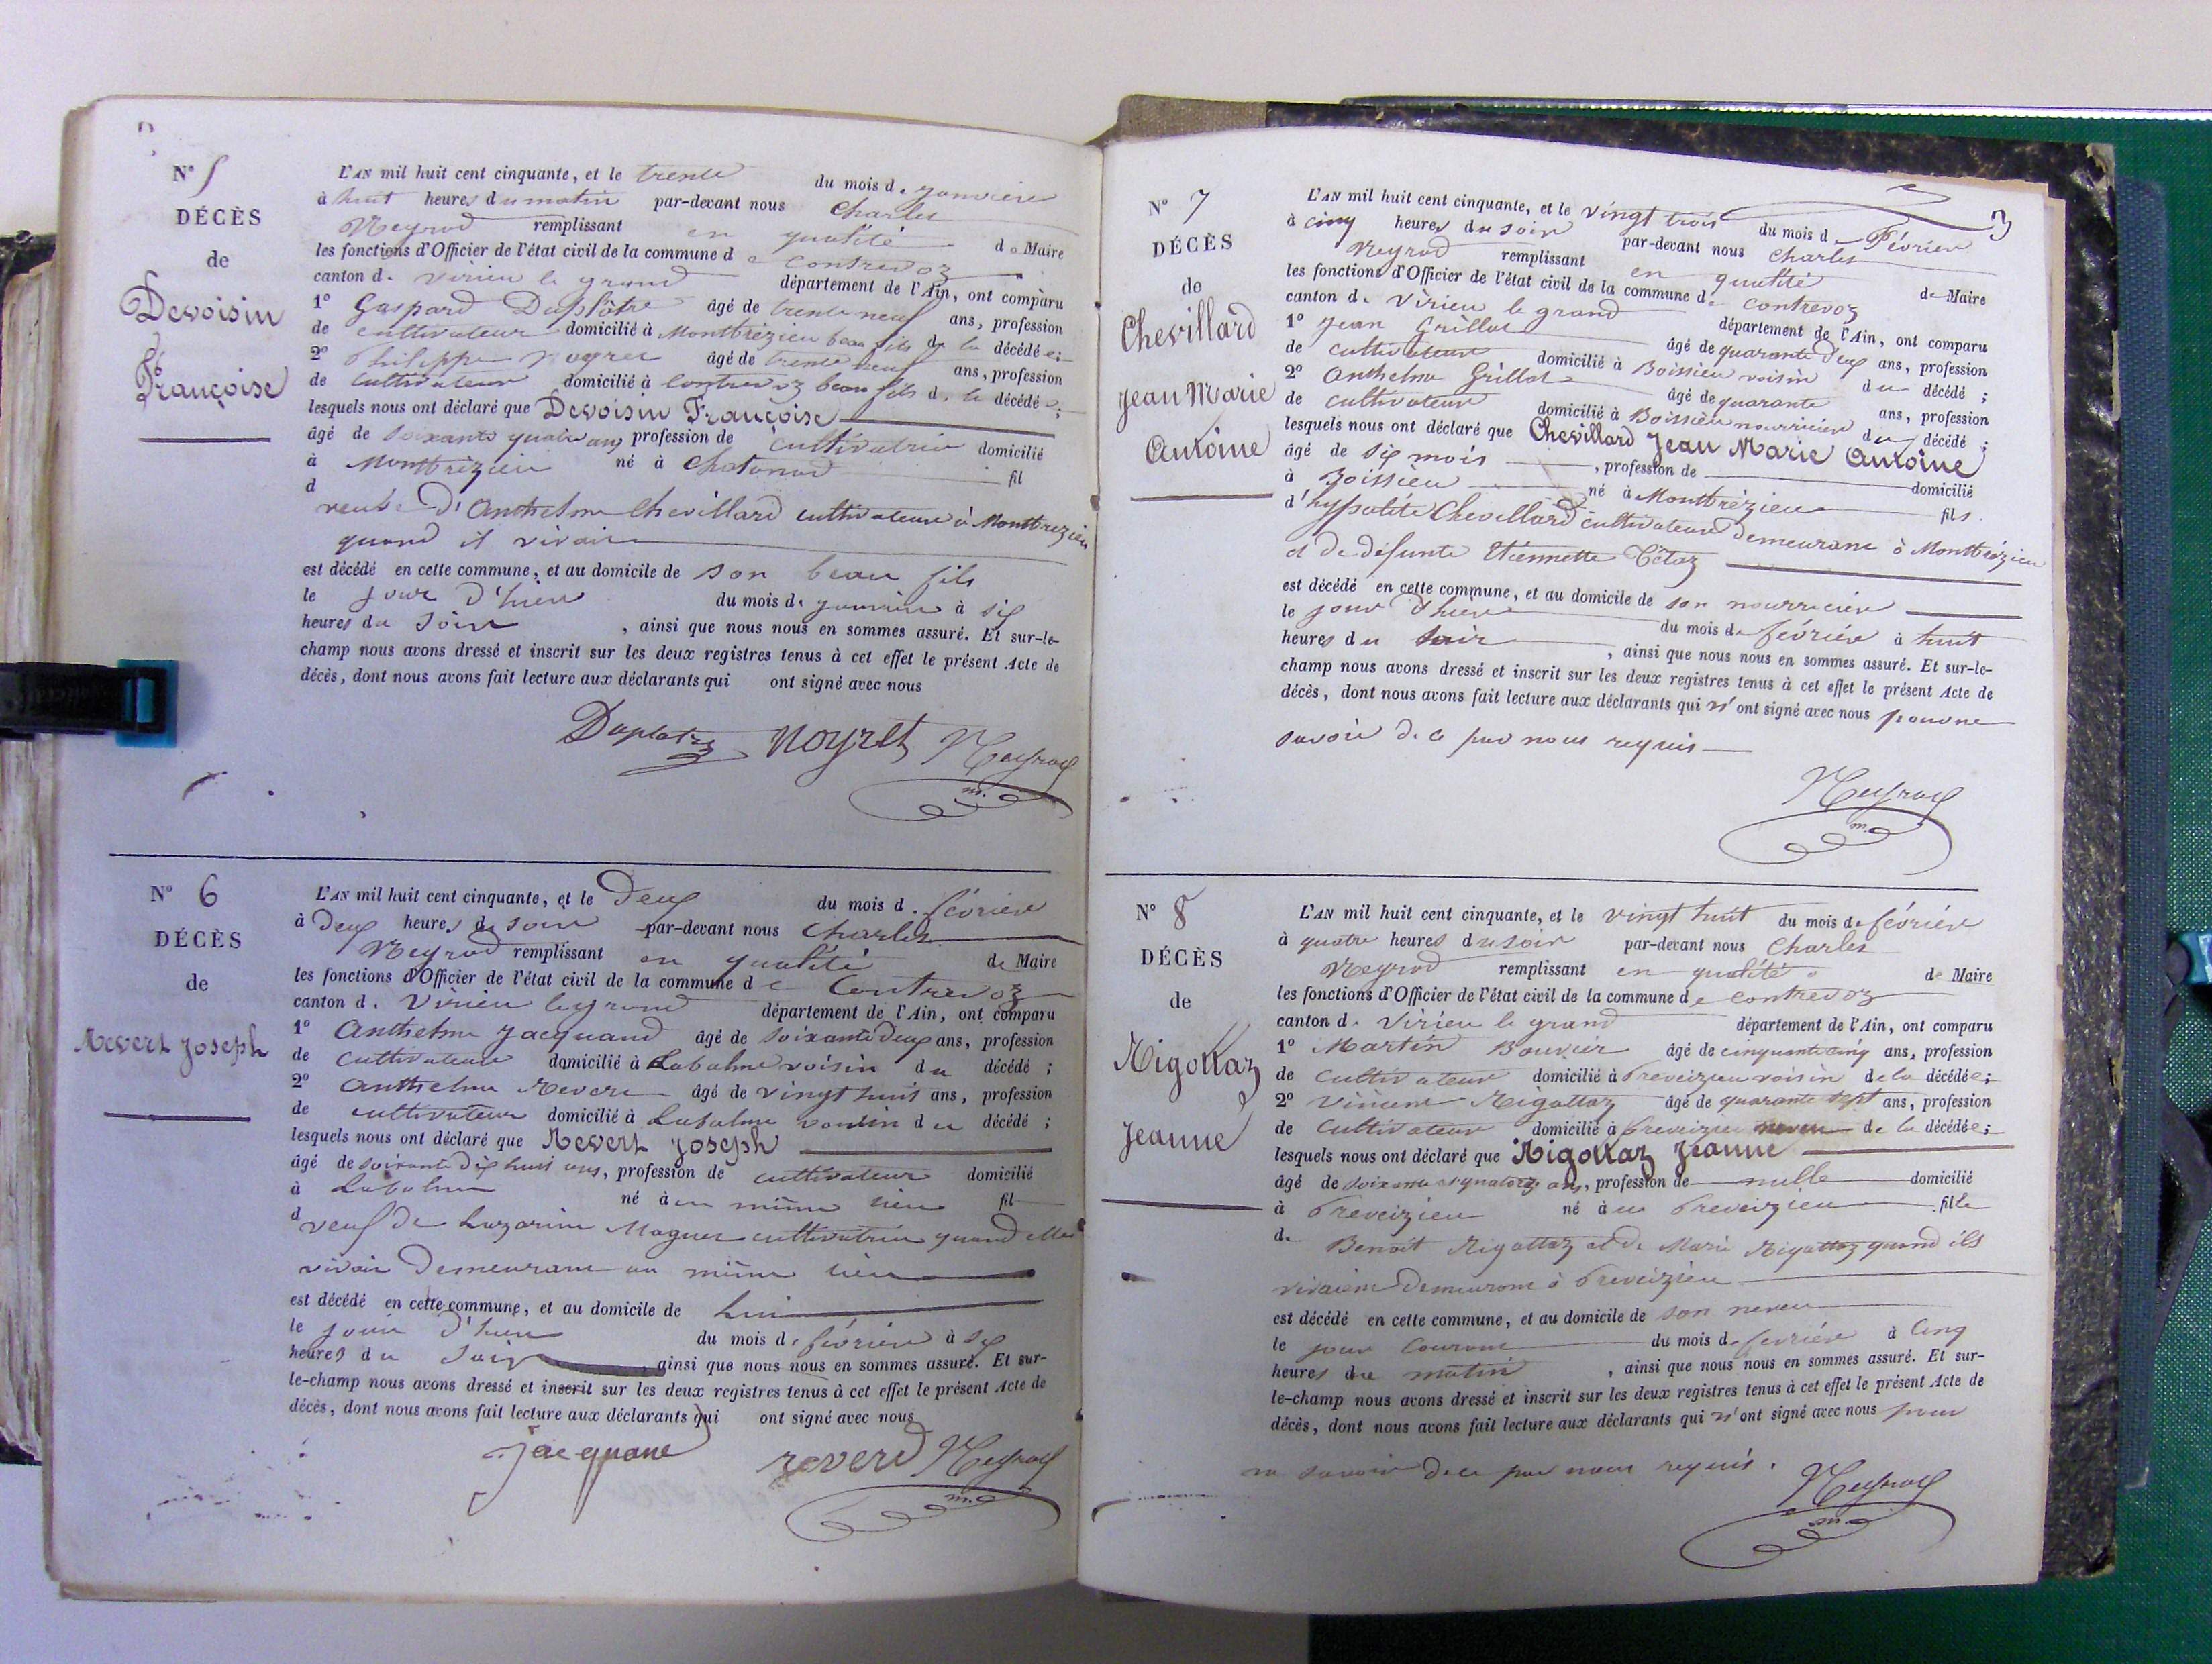 N° 5
DÉCÈS
de
Devoisin
Françoise
L'AN mil huit cent cinquante, et le trente du mois de janvier
à huit heures du matin par-devant nous Charles
Neyrod remplissant en qualité de Maire
les fonctions d'Officier de l'état civil de la commune de Contrevoz
canton de Virieu le grand département de l'Ain, ont comparu
1° Gaspard Duplâtre âgé de trente neuf ans, profession
de cultivateur domicilié à Montbrezieu beau fils de la décédée;
2° Philippe Noyret âgé de trente neuf ans, profession
de cultivateur domicilié à Contrevoz beau fils de la décédée;
lesquels nous ont déclaré que Devoisin Françoise
âgé de soixante quatre ans, profession de cultivatrice domicilié
à Montbrezieu né à Chatonod fil
d
veuve d'Anthelme Chevillard cultivateur à Montbrezieu
quand il vivait
est décédé en cette commune, et au domicile de son beau fils
le jour d'hier du mois de janvier à six
heures du soir, ainsi que nous nous en sommes assuré. Et sur-le-
champ nous avons dressé et inscrit sur les deux registres tenus à cet effet le présent Acte de
décès, dont nous avons fait lecture aux déclarants qui ont signé avec nous
Duplatre Noyret Neyrod
m.
N° 6
DÉCÈS
de
Revert Joseph
L'AN mil huit cent cinquante, et le deux du mois de février
à deux heures du soir par-devant nous Charles
Neyrod remplissant en qualité de Maire
les fonctions d'Officier de l'état civil de la commune de Contrevoz
canton de Virieu le grand département de l'Ain, ont comparu
1° Anthelme Jacquand âgé de soixante deux ans, profession
de cultivateur domicilié à Labalme voisin du décédé;
2° Anthelme Revert âgé de vingt huit ans, profession
de cultivateur domicilié à Labalme voisin du décédé;
lesquels nous ont déclaré que Revert Joseph
âgé de soixante dix huit ans, profession de cultivateur domicilié
à Labalme né à au même lieu fil
d
veuf de Lazarine Magnin cultivatrice quand elle
vivait demeurant au même lieu
est décédé en cette commune, et au domicile de lui
le jour d'hier du mois de février à six
heures du soir ainsi que nous nous en sommes assuré. Et sur-
le-champ nous avons dressé et inscrit sur les deux registres tenus à cet effet le présent Acte de
décès, dont nous avons fait lecture aux déclarants qui ont signé avec nous
jacquand reverd Neyrod
m.
3
N° 7
DÉCÈS
de
Chevillard
Jean Marie
Antoine
L'AN mil huit cent cinquante, et le vingt trois du mois de Février
à cinq heures du soir par-devant nous Charles
Neyrod remplissant en qualité de Maire
les fonctions d'Officier de l'état civil de la commune de Contrevoz
canton de Virieu le grand département de l'Ain, ont comparu
1° Jean Grillot âgé de quarante deux ans, profession
de cultivateur domicilié à Boissieu voisin du décédé;
2° Anthelme Grillot âgé de quarante ans, profession
de cultivateur domicilié à Boissieu nourricier du décédé;
lesquels nous ont déclaré que Chevillard Jean Marie Antoine
âgé de six mois, profession de domicilié
à Boissieu né à Montbrezieu fils
d'hyppolite Chevillard cultivateur demeurant à Montbrezieu
et de défunte Etiennette Tétaz
est décédé en cette commune, et au domicile de son nourricier
le jour d'hier du mois de février à huit
heures du soir, ainsi que nous nous en sommes assuré. Et sur-le-
champ nous avons dressé et inscrit sur les deux registres tenus à cet effet le présent Acte de
décès, dont nous avons fait lecture aux déclarants qui n'ont signé avec nous pour ne
savoir de ce par nous requis
Neyrod
m.
N° 8
DÉCÈS
de
Rigottaz
Jeanne
L'AN mil huit cent cinquante, et le vingt huit du mois de février
à quatre heures du soir par-devant nous Charles
Neyrod remplissant en qualité de Maire
les fonctions d'Officier de l'état civil de la commune de Contrevoz
canton de Virieu le grand département de l'Ain, ont comparu
1° Martin Bouvier âgé de cinquante cinq ans, profession
de cultivateur domicilié à Preveizieu voisin de la décédée;
2° Vincent Rigottaz âgé de quarante sept ans, profession
de cultivateur domicilié à Preveizieu neveu de la décédée;
lesquels nous ont déclaré que Rigottaz Jeanne
âgé de soixante quatorze ans, profession de nulle domicilié
à Preveizieu né à au Preveizieu fille
de Benoit Rigottaz et de Marie Rigottaz quand ils
vivaient demeurant à Preveizieu
est décédé en cette commune, et au domicile de son neveu
le jour courant du mois de fevrier à cinq
heures du matin, ainsi que nous nous en sommes assuré. Et sur-
le-champ nous avons dressé et inscrit sur les deux registres tenus à cet effet le présent Acte de
décès, dont nous avons fait lecture aux déclarants qui n'ont signé avec nous pour
ne savoir de ce par nous requis.
Neyrod
m.